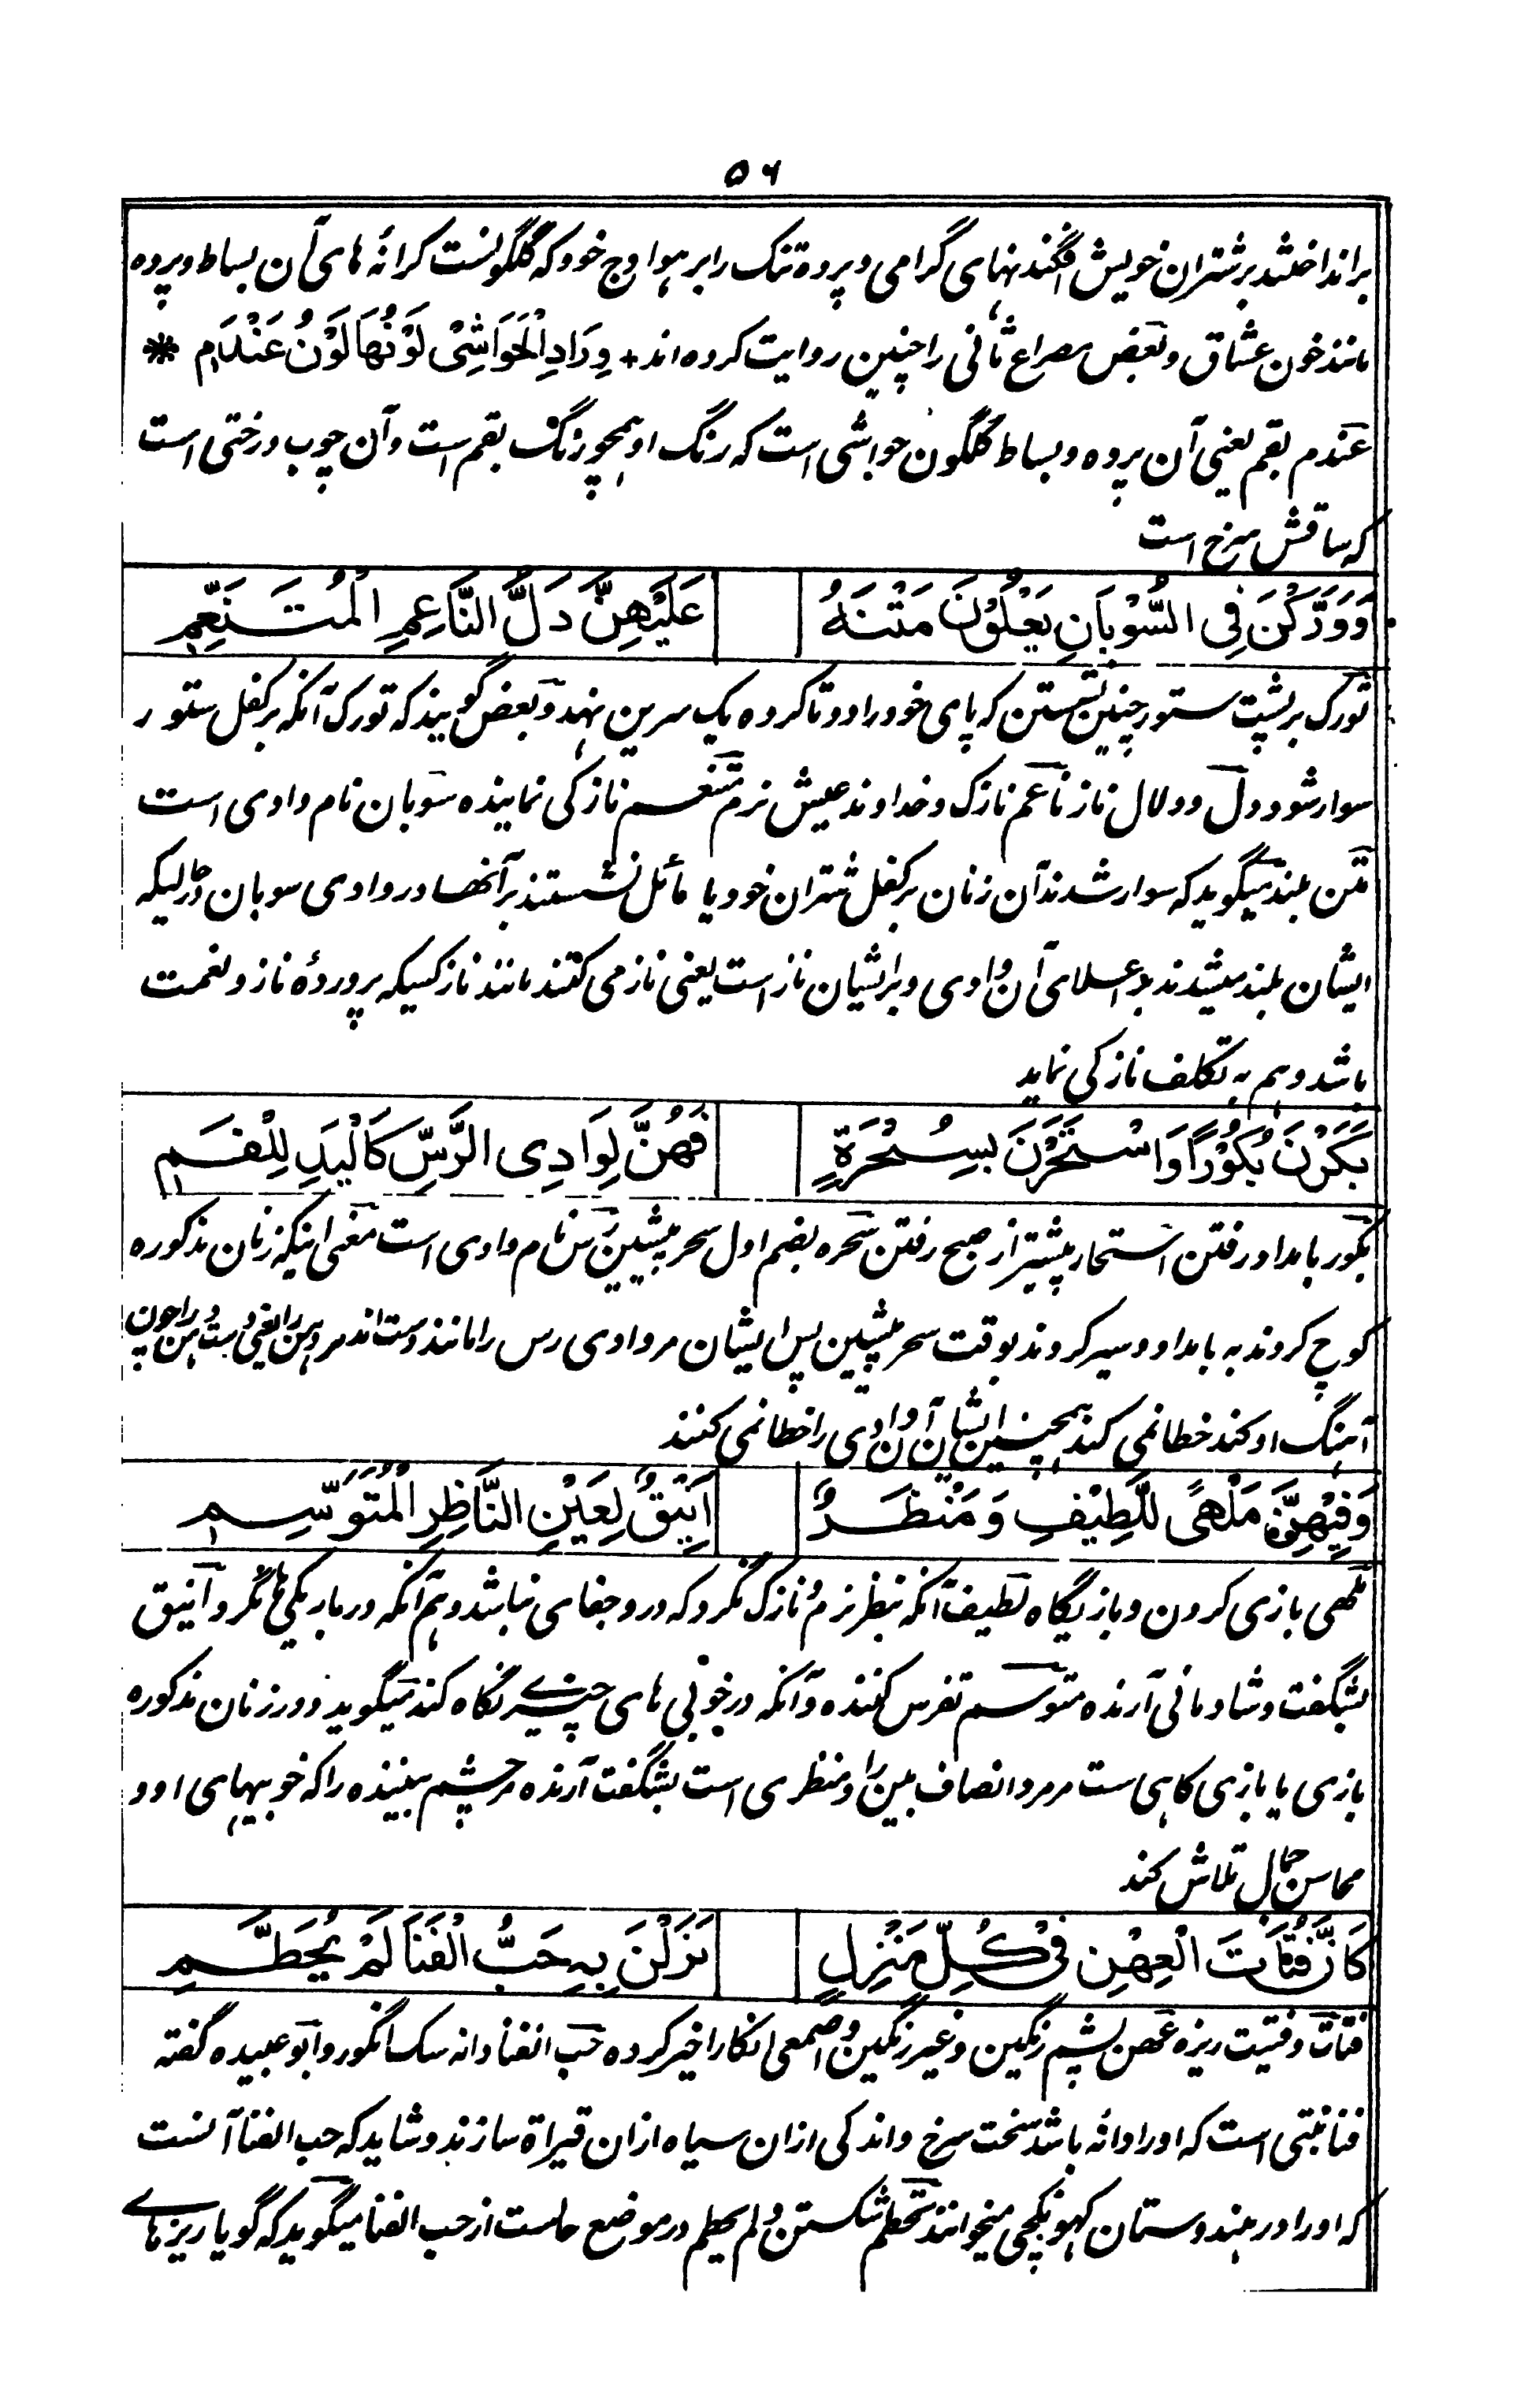 ۵۶
برانداختند بر شتران خویش افگندنهای گرامی و پرده تنک را بر هوادج خود که گلگونست کرانه های آن بساط و پرده
مانند خون عشاق و بعض مصراع ثانی را چنین روایت کرده اند + وِرَادِ الْحَوَاشِیْ لَوْنُهَا لَوْنُ عَنْدَم *
عندم بقم یعنی آن پرده و بساط گلگون حواشی است که رنگ او همچو رنگ بقم است و آن چوب درختی است
که ساقش سرخ است
وَوَرَّكْنَ فِی السُّوْبَانِ يَعْلُوْنَ مَتْنَهُ عَلَيْهِنَّ دَلُّ النَّاعِمِ الْمُتَنَعِّمِ
تورک بر پشت ستور چنین نشستن که پای خود را دوتا کرده یک سرین نهد و بعض گویند که تورک آنکه بر کفل ستور
سوار شود دل و دلال ناز ناعم نازک و خداوند عیش نرم متنعم نازکی نماینده سوبان نام وادی است
متن بلند میگوید که سوار شدند آن زنان بر کفل شتران خود یا مائل نشستند بر آنها در وادی سوبان درحالیکه
ایشان بلند میشدند بر اعلای آن وادی و بر ایشان ناز است یعنی ناز می کنند مانند ناز کسیکه پروردهٔ ناز و نعمت
باشد و هم به تکلف نازکی نماید
بَكَرْنَ بُكُوْرًا وَاسْتَحَرْنَ بِسُحْرَةٍ فَهُنَّ لِوَادِی الرَّسِّ كَالْيَدِ لِلْفَمِ
بکور بامداد رفتن استحار پیشتر از صبح رفتن سحره بضم اول سحر پیشین رس نام وادی است معنی اینکه زنان مذکوره
کوچ کردند به بامداد و سیر کردند بوقت سحر پیشین پس ایشان مر وادی رس را مانند دست اند مر دهن را یعنی دست دهن را چون
آهنگ او کند خطا نمی کند همچنین ایشان آن وادی را خطا نمی کنند
وَفِيْهِنَّ مَلْهًی لِلَّطِيْفِ وَمَنْظَرٌ اَنِيْقٌ لِعَيْنِ النَّاظِرِ الْمُتَوَسِّمِ
ملهی بازی کردن و بازیگاه لطیف آنکه بنظر نرم و نازک نگرد که درو جفای نباشد و هم آنکه در باریکی ها نگرد انیق
بشگفت و شادمانی آرنده متوسم تفرس کننده و آنکه در خوبی های چیزے نگاه کند میگوید و در زنان مذکوره
بازی یا بازی گاهی ست مر مرد انصاف بین را و منظری است بشگفت آرنده مر چشم بیننده را که خوبیهای او و
محاسن جمال تلاش کند
كَاَنَّ فُتَاتَ الْعِهْنِ فِیْ كُلِّ مَنْزِلٍ نَزَلْنَ بِهِ حَبُّ الْفَنَا لَمْ يُحَطَّمِ
فتات و فتیت ریزه عهن پشم رنگین و غیر رنگین و اصمعی انکار اخیر کرده حب الفنا دانه سک انگور و ابو عبیده گفته
فنا نبتی است که او را دانه باشد سخت سرخ و اندکی ازان سیاه ازان قیراة سازند و شاید که حب الفنا آنست
که او را در هندوستان میخوانند تحطم شکستن و لم یحطم در موضع حالست از حب الفنا میگوید که گویا ریزهاے